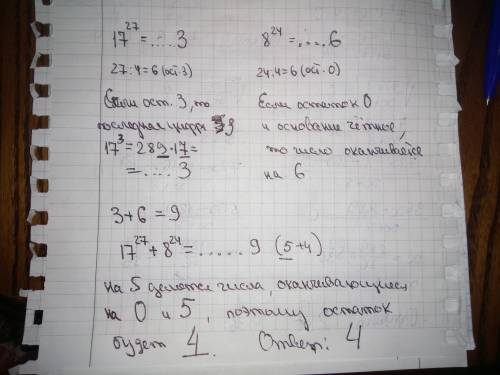 17²⁷ = ....3
8²⁴ = ....6
27:4=6 (ост. 3)
24:4=6 (ост. 0)
Если ост. 3, то
последняя цифра 3
17³ = 289·17 =
= .... 3
Если остаток 0
и основание чётное,
то число оканчивается
на 6
3+6 = 9
17²⁷ + 8²⁴ = ..... 9 (5+4)
на 5 делятся числа, оканчивающиеся
на 0 и 5, поэтому остаток
будет 4. Ответ: 4